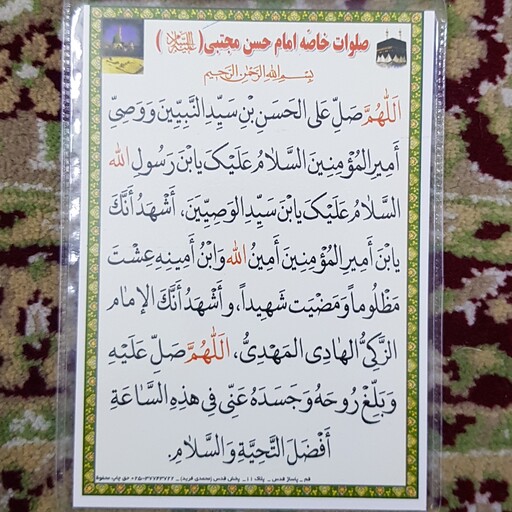 صلوات خاصه امام حسن مجتبی (علیه السلام)
بِسْمِ اللهِ الرَّحْمٰنِ الرَّحیمِ
اَللّٰهُمَّ صَلِّ عَلَی الْحَسَنِ بْنِ سَیِّدِ النَّبِیّینَ وَ وَصِیِّ
أَمیرِ الْمُؤْمِنینَ السَّلامُ عَلَیْکَ یَا بْنَ رَسُولِ اللهِ
السَّلامُ عَلَیْکَ یَا بْنَ سَیِّدِ الْوَصِیّینَ، أَشْهَدُ أَنَّکَ
یَا بْنَ أَمیرِ الْمُؤْمِنینَ أَمینُ اللهِ وَ ابْنُ أَمینِهِ عِشْتَ
مَظْلُوماً وَ مَضَیْتَ شَهیداً، وَ أَشْهَدُ أَنَّکَ الْإِمام
الزَّکِیُّ الْهادِی الْمَهْدِیُّ، اَللّٰهُمَّ صَلِّ عَلَیْهِ
وَ بَلِّغْ رُوحَهُ وَ جَسَدَهُ عَنّی فی هذِهِ السَّاعَةِ
أَفْضَلَ التَّحِیَّةِ وَ السَّلامِ.
قم _ پاساژ قدس _ پلاک ۱۱ _ پخش قدس (محمدی فرید) _ ۳۷۷۴۳۷۲۲-۰۲۵ حق چاپ محفوظ